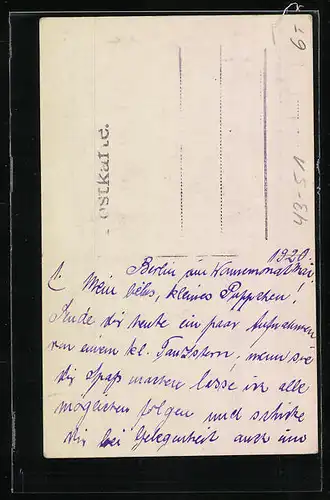 Postkarte.
6-
43-51
1920.
Berlin im Wonnemonat Mai.
1. Mein liebes, kleines Püppchen!
Sende dir heute ein paar Aufnahmen
von einem kl. Tanzstern, wenn sie
dir Spaß machen lasse ich alle
möglichen folgen und schicke
dir bei Gelegenheit auch